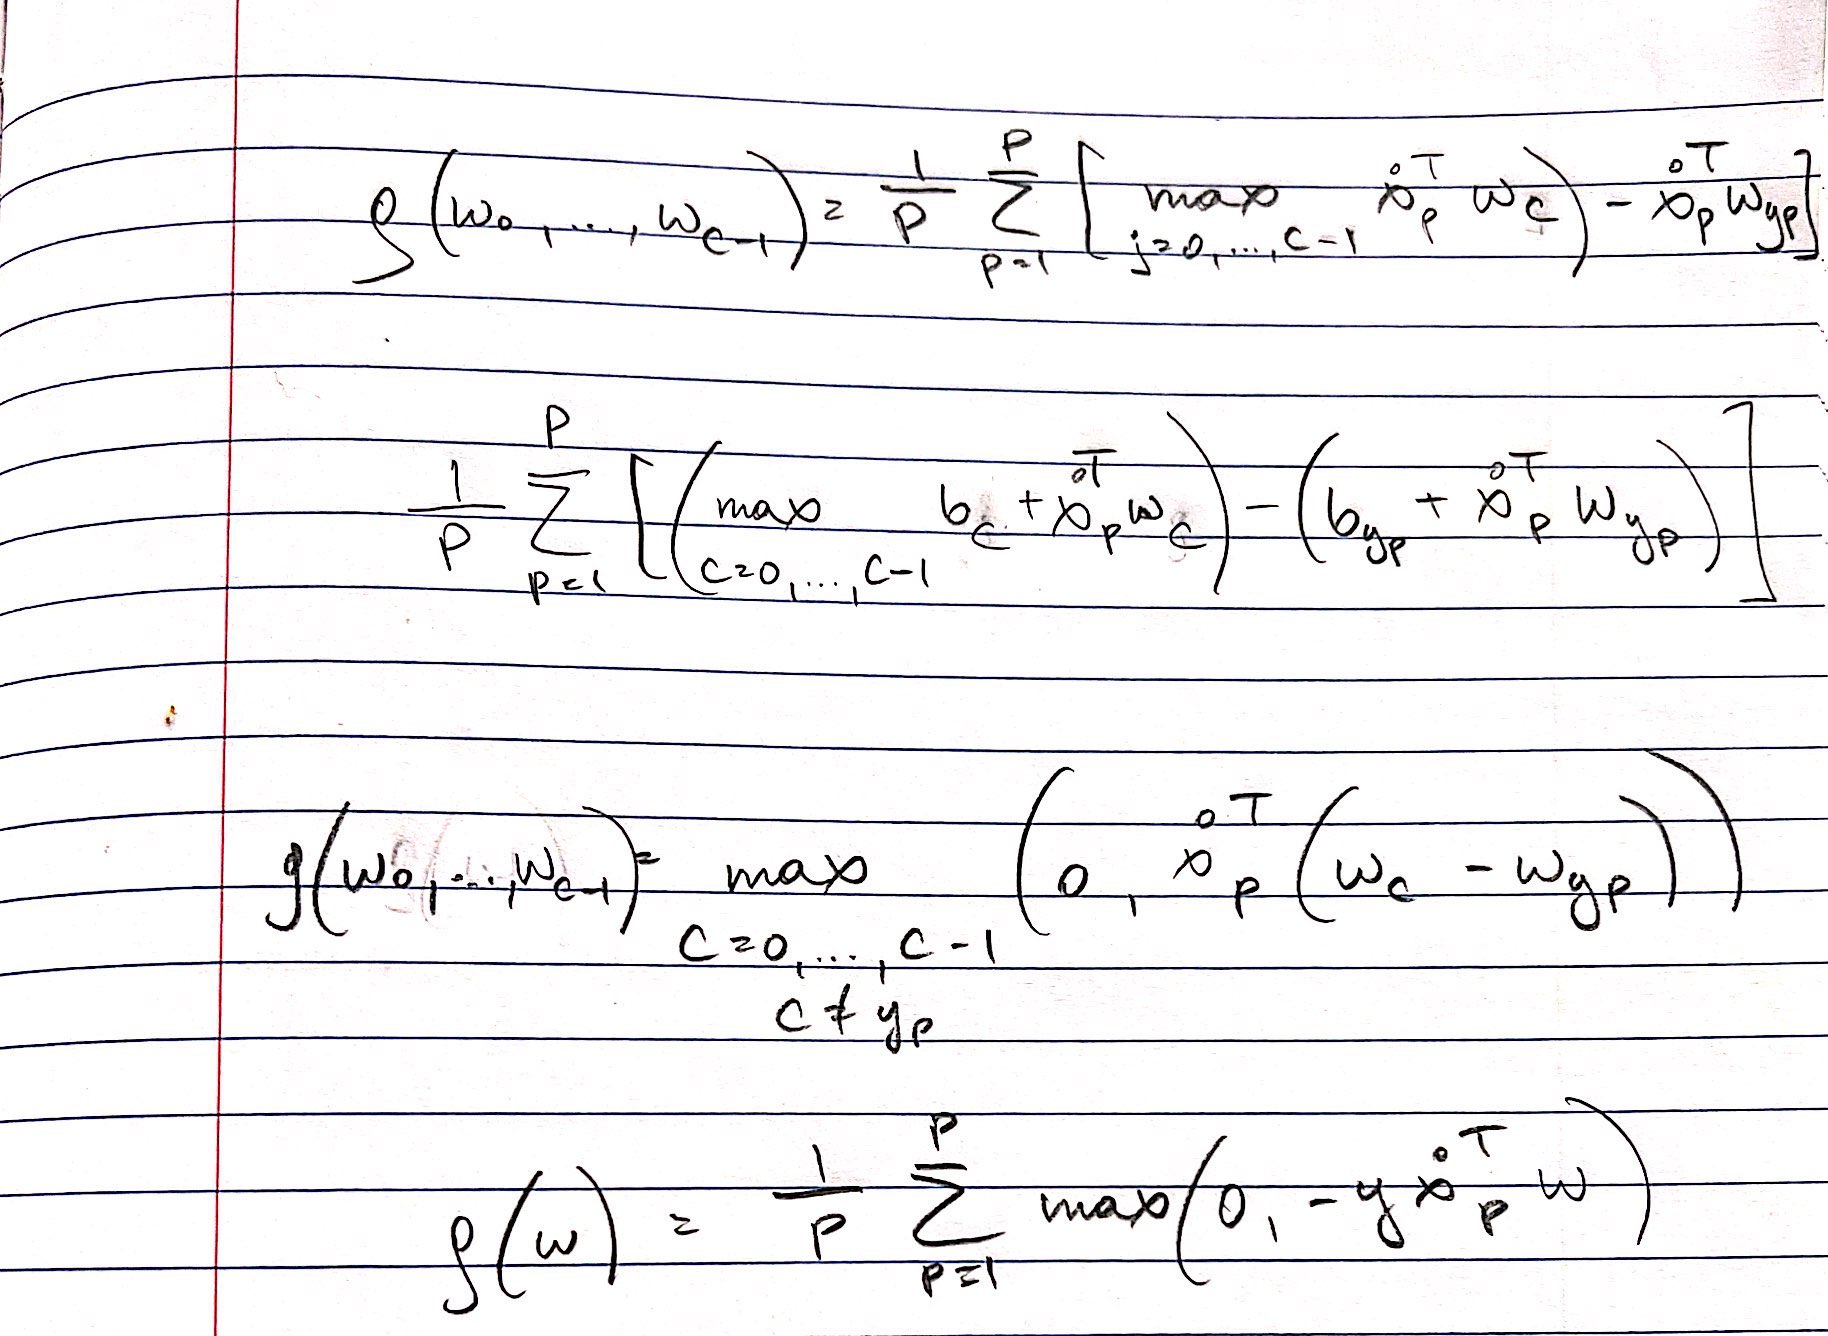 g(w₀, ..., w_{C-1}) = \frac{1}{P} \sum_{p=1}^{P} [ \max_{j=0,...,C-1} \mathring{x}_p^T w_c ) - \mathring{x}_p^T w_{y_p} ]
\frac{1}{P} \sum_{p=1}^{P} [ ( \max_{c=0,...,C-1} b_c + \mathring{x}_p^T w_c ) - ( b_{y_p} + \mathring{x}_p^T w_{y_p} ) ]
g(w₀, ..., w_{C-1}) = \max_{c=0,...,C-1, c ≠ y_p} ( 0, \mathring{x}_p^T ( w_c - w_{y_p} ) )
g(w) = \frac{1}{P} \sum_{p=1}^{P} \max ( 0, -y \mathring{x}_p^T w )